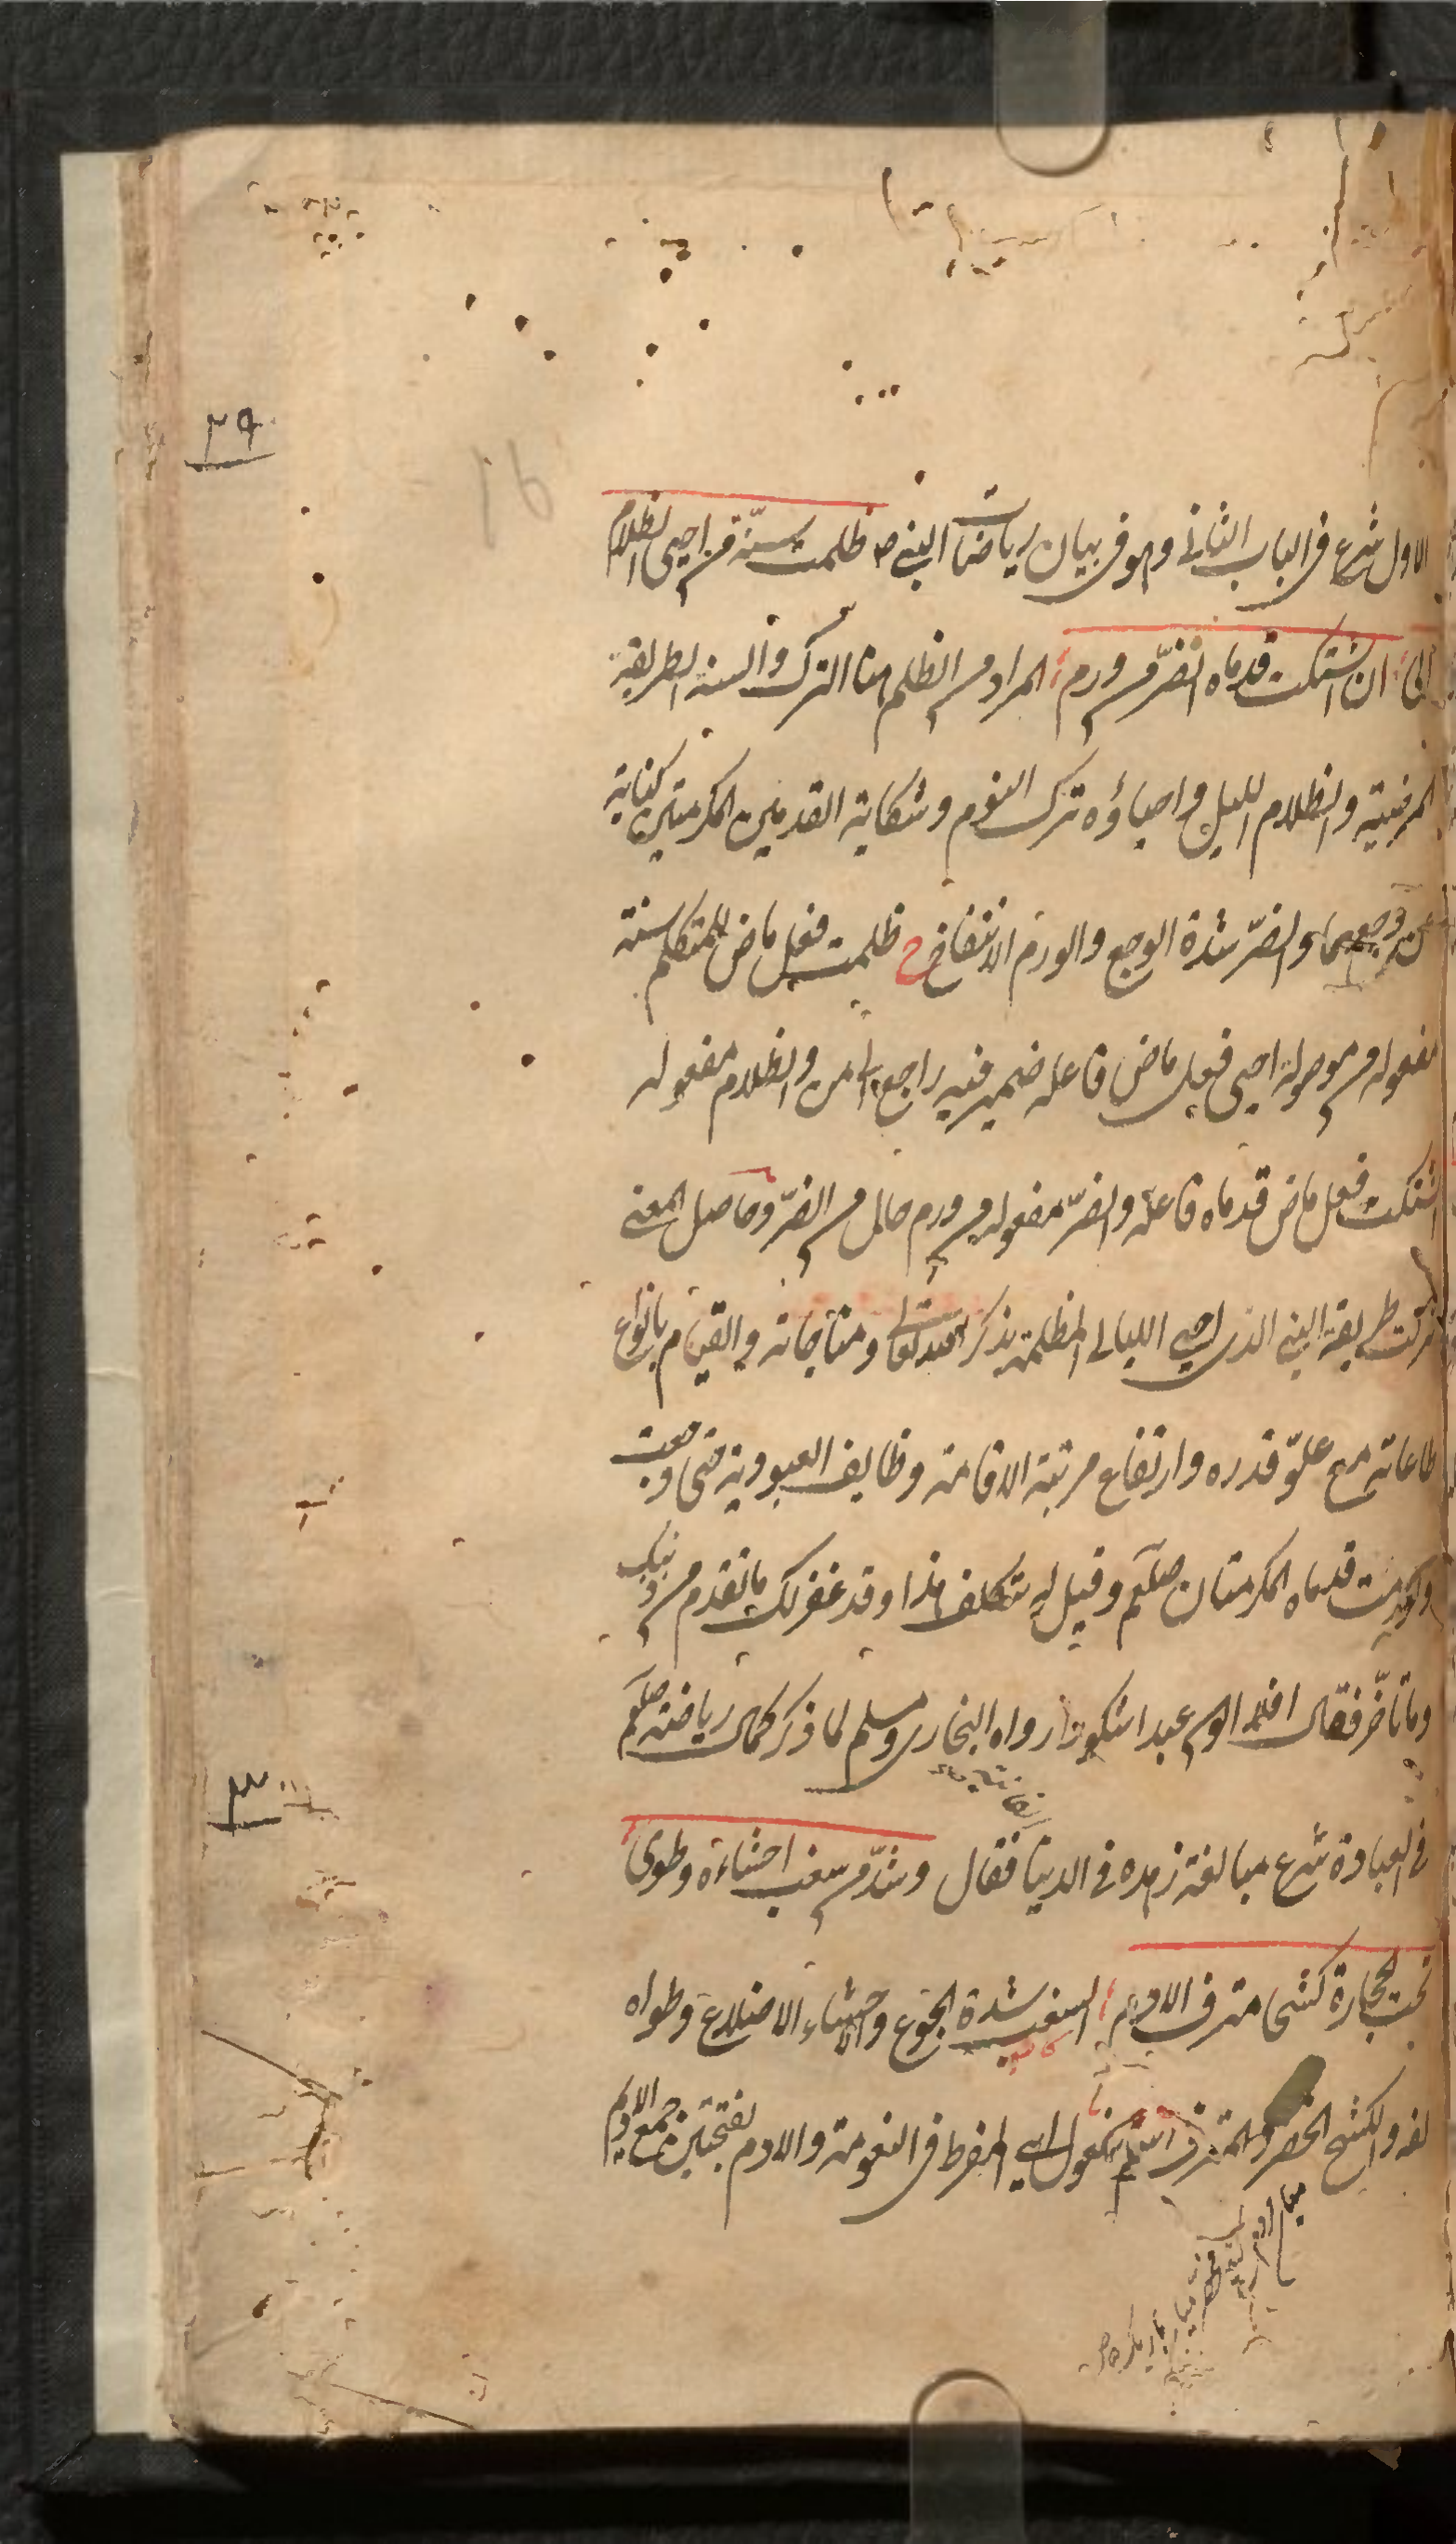 ٢٩
16
الاول شرع فى الباب الثانى وهو فى بيان رياضات النبى ص ظلمت سنّة من احيى الظلام
الى ان اشتكت قدماه الضرّ من ورم المراد من الظلم هنا الترك والسنة الطريقة
المرضية والظلام الليل واحياؤه ترك النوم وشكاية القدمين المكرمتين كناية
عن وجعهما والضرّ شدة الوجع والورم الانتفاخ ح ظلمت فعل ماض للمتكلم سنة
مفعوله من موصولة احيى فعل ماض فاعله ضمير فيه راجع الى من والظلام مفعوله
اشتكت فعل ماض قدماه فاعله والضرّ مفعوله من ورم حال من الضرّ وحاصل المعنى
تركت طريقة النبى الذى احيى الليالى المظلمة بذكر الله تعالى ومناجاته والقيام بانواع
طاعاته مع علوّ قدره وارتفاع مرتبته الاقامة وظايف العبودية حتى وجعت
وتورمت قدماه المكرمتان صلعم وقيل له تتكلف هذا وقد غفر لك ما تقدم من ذنبك
وما تأخّر فقال افلا اكون عبدا شكورا رواه البخارى ومسلم لما ذكر كمال رياضته صلعم
٣٠
فى العبادة شرع مبالغة زهده فى الدينا فقال وشدّ من سغب احشاءه وطوى
تحت الحجارة كشحا مترف الادم السغب شدة الجوع والاحشاء الاضلاع وطواه
لفه والكشح الخصر والمترف اسم مفعول اى المفرط فى النعومة والادم بفتحتين جمع الاديم